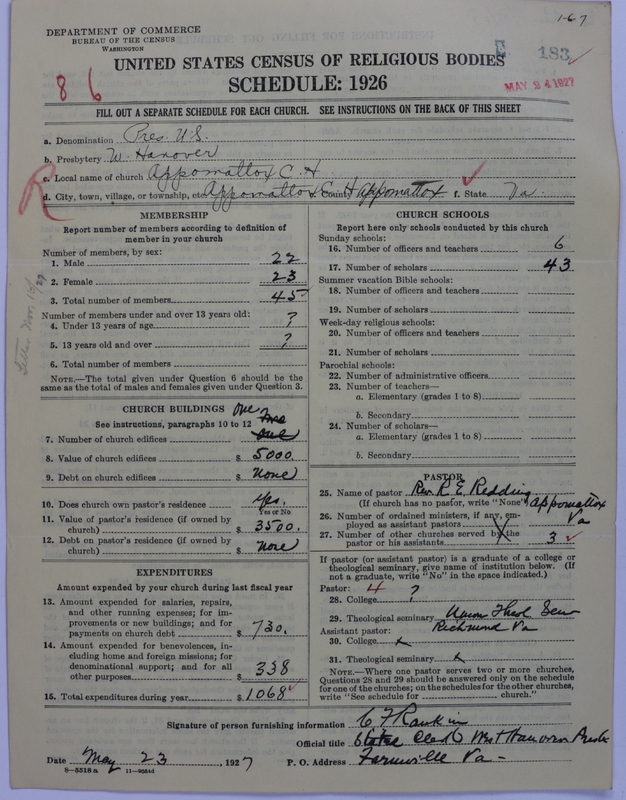 1-67
DEPARTMENT OF COMMERCE
BUREAU OF THE CENSUS
WASHINGTON
183
MAY 24 1927
UNITED STATES CENSUS OF RELIGIOUS BODIES
SCHEDULE: 1926
8 6
FILL OUT A SEPARATE SCHEDULE FOR EACH CHURCH. SEE INSTRUCTIONS ON THE BACK OF THIS SHEET
a. Denomination Pres. U.S.
b. Presbytery W. Hanover
c. Local name of church Appomattox C. H.
d. City, town, village, or township, etc. Appomattox C. H. e. County Appomattox f. State Va.
MEMBERSHIP
Report number of members according to definition of member in your church
Number of members, by sex:
1. Male 22
2. Female 23
3. Total number of members 45
Number of members under and over 13 years old:
4. Under 13 years of age ?
5. 13 years old and over ?
6. Total number of members
NOTE.—The total given under Question 6 should be the same as the total of males and females given under Question 3.
CHURCH BUILDINGS
See instructions, paragraphs 10 to 12
7. Number of church edifices one
8. Value of church edifices $ 5000.
9. Debt on church edifices $ none
10. Does church own pastor's residence yes.
Yes or No
11. Value of pastor's residence (if owned by church) $ 3500.
12. Debt on pastor's residence (if owned by church) $ none
EXPENDITURES
Amount expended by your church during last fiscal year
13. Amount expended for salaries, repairs, and other running expenses; for improvements or new buildings; and for payments on church debt $ 730.
14. Amount expended for benevolences, including home and foreign missions; for denominational support; and for all other purposes $ 338
15. Total expenditures during year $ 1068
CHURCH SCHOOLS
Report here only schools conducted by this church
Sunday schools:
16. Number of officers and teachers 6
17. Number of scholars 43
Summer vacation Bible schools:
18. Number of officers and teachers
19. Number of scholars
Week-day religious schools:
20. Number of officers and teachers
21. Number of scholars
Parochial schools:
22. Number of administrative officers
23. Number of teachers—
a. Elementary (grades 1 to 8)
b. Secondary
24. Number of scholars—
a. Elementary (grades 1 to 8)
b. Secondary
PASTOR
25. Name of pastor Rev. R. E. Redding
(If church has no pastor, write "None") Appomattox Va
26. Number of ordained ministers, if any, employed as assistant pastors
27. Number of other churches served by the pastor or his assistants 3
If pastor (or assistant pastor) is a graduate of a college or theological seminary, give name of institution below. (If not a graduate, write "No" in the space indicated.)
Pastor: 4
28. College ?
29. Theological seminary Union Theol Sem
Richmond Va
Assistant pastor:
30. College x
31. Theological seminary x
NOTE.—Where one pastor serves two or more churches, Questions 28 and 29 should be answered only on the schedule for one of the churches; on the schedules for the other churches, write "See schedule for church."
Signature of person furnishing information C F Rankin
Official title Stated Clerk West Hanover Presb
Date May 23, 1927 P. O. Address Farmville Va
8-5518a